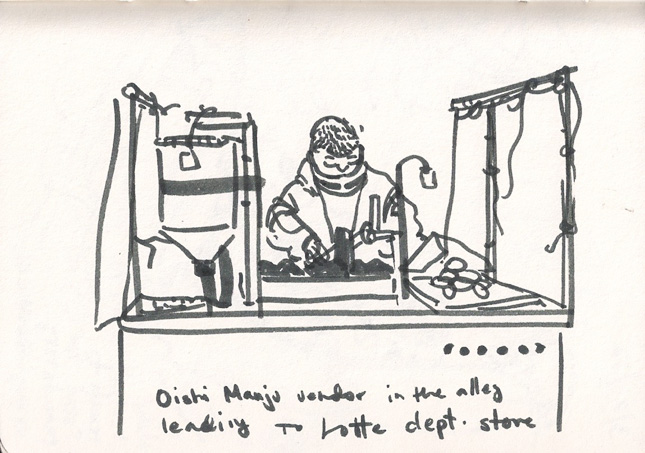 Oishi Manju vendor in the alley
leading to Lotte dept. store